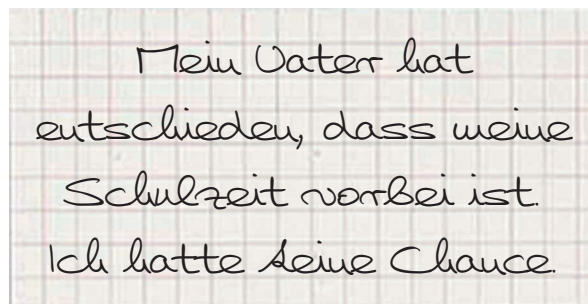 Mein Vater hat
entschieden, dass meine
Schulzeit vorbei ist.
Ich hatte keine Chance.